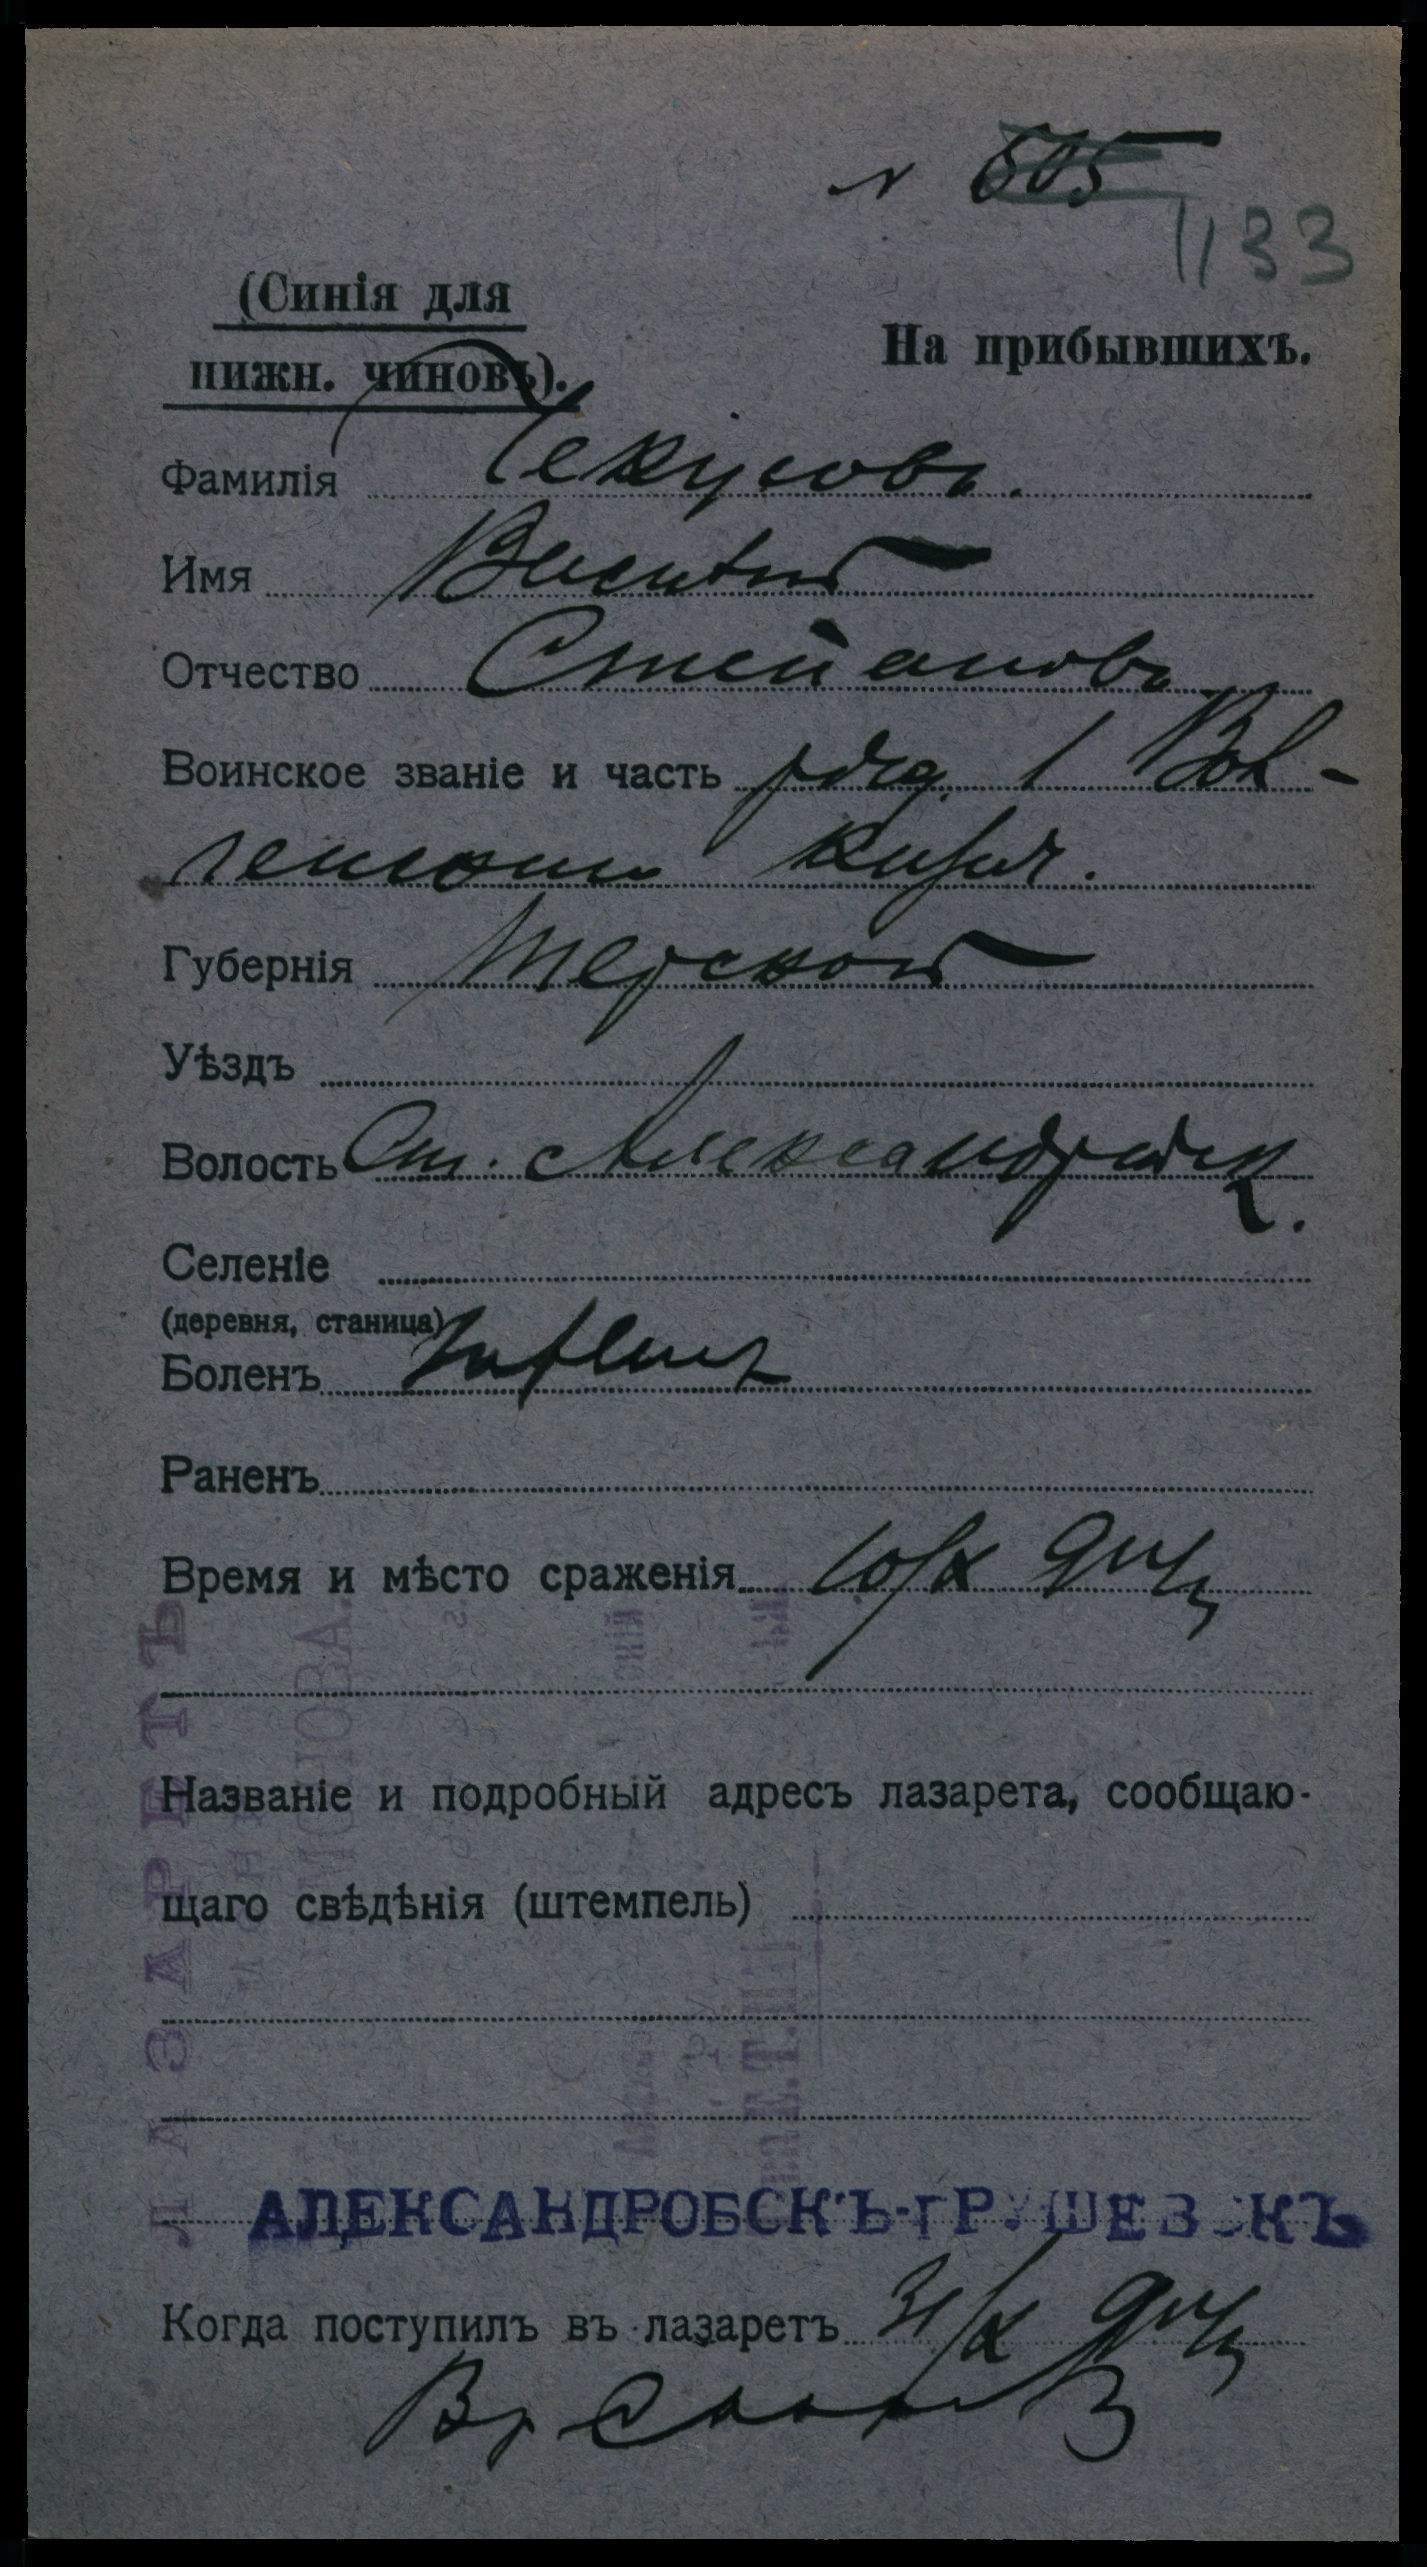 N 505
1133
(Синія для
нижн. чиновъ).
На прибывшихъ.
Фамилія Чекусовъ.
Имя
Отчество Степановъ
Воинское званіе и часть ряд. 1 Вол-
генскаго
Губернія Терской
Уѣздъ
Волость Ст. Александрійск.
Селеніе
(деревня, станица)
Боленъ
Раненъ
Время и мѣсто сраженія 10/X
Названіе и подробный адресъ лазарета, сообщаю-
щаго свѣдѣнія (штемпель)
ЛАЗАРЕТЪ
АЛЕКСАНДРОВСКЪ-ГРУШЕВСКЪ
Когда поступилъ въ лазаретъ 31/X